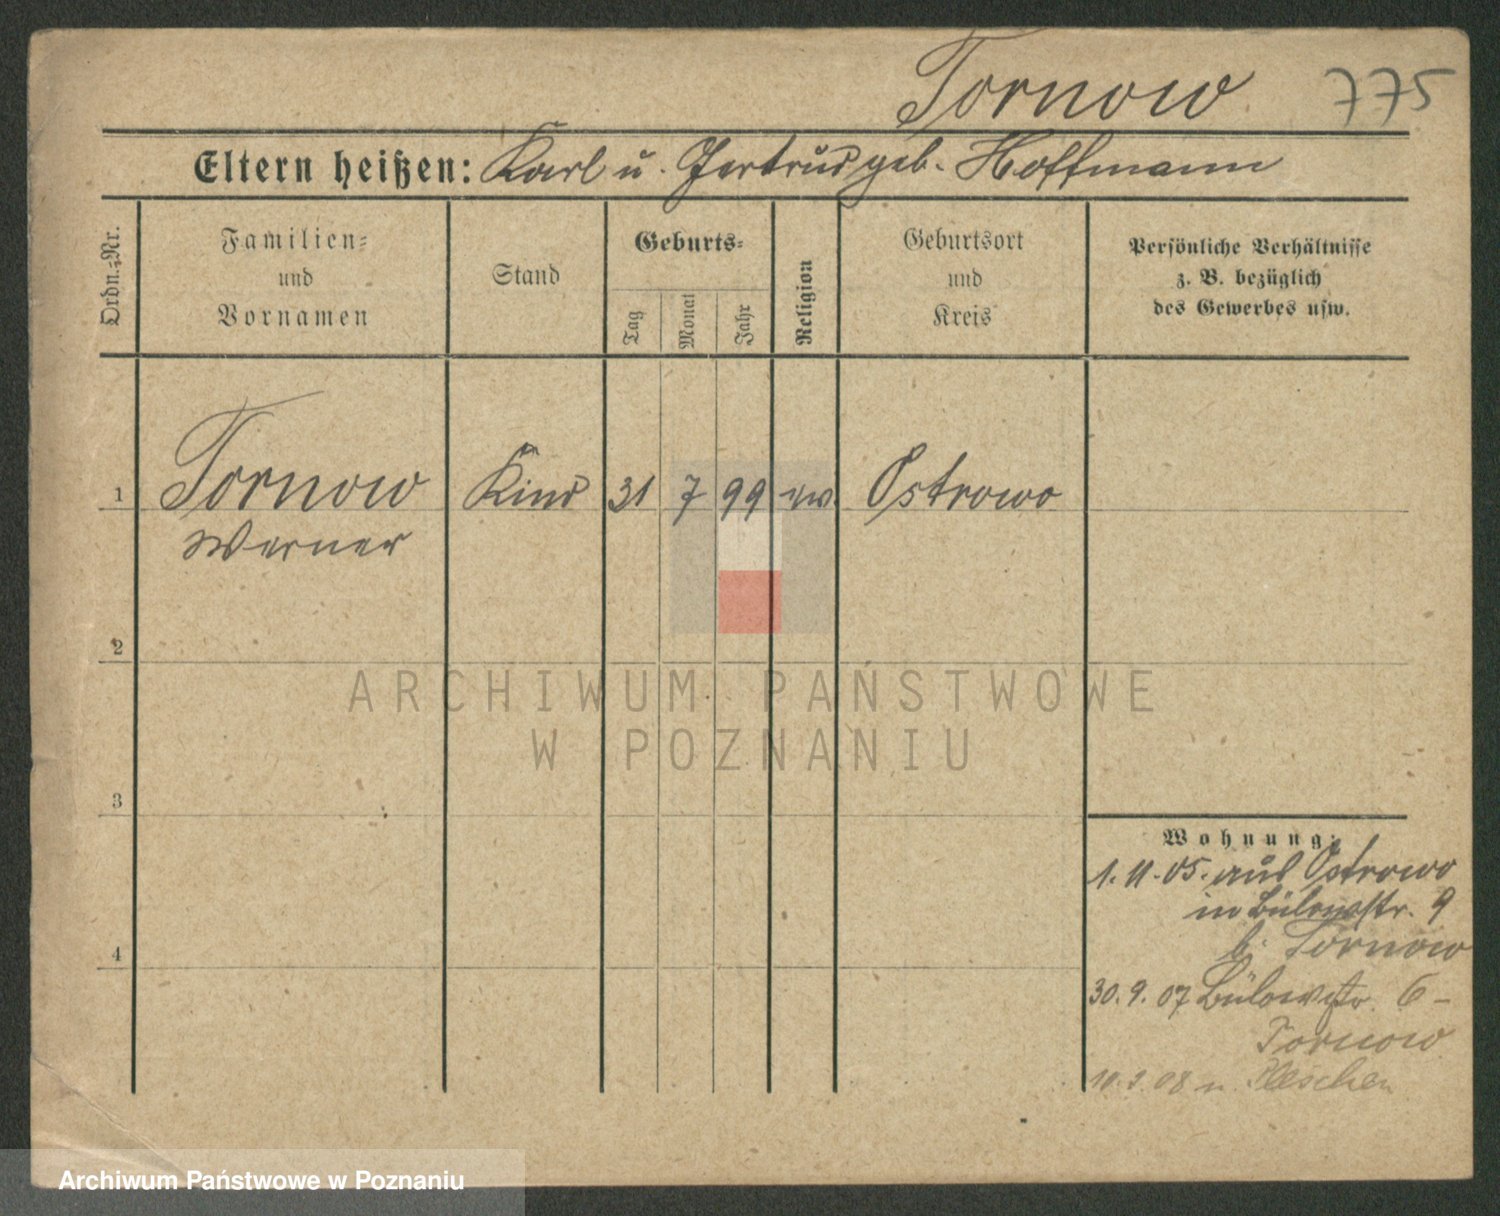 Tornow 775
Eltern heißen: Karl u. Gertrud geb. Hoffmann
Ordn.-Nr.
Familien-
und
Vornamen
Stand
Geburts-
Tag
Monat
Jahr
Religion
Geburtsort
und
Kreis
Persönliche Verhältnisse
z. B. bezüglich
des Gewerbes usw.
1 Tornow Kind 31 7 99 ev. Ostrowo
Werner
2
3
4
Wohnung:
1. 11. 05. aus Ostrowo
in Bülowstr. 9
b. Tornow
30. 9. 07 Bülowstr. 6 -
Tornow
08 n. Pleschen
ARCHIWUM PAŃSTWOWE
W POZNANIU
Archiwum Państwowe w Poznaniu